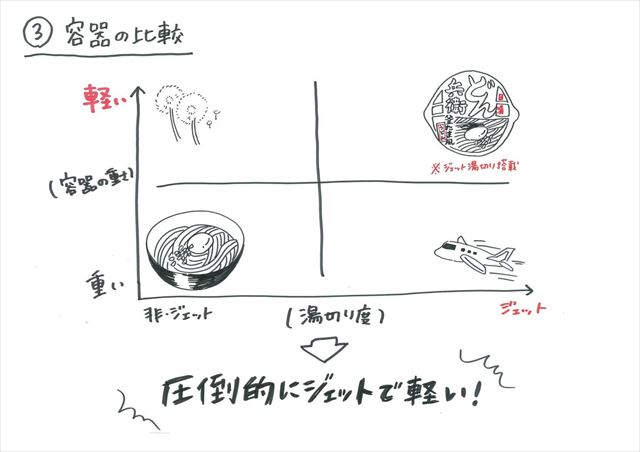 ③ 容器の比較
軽い
日清
どん
兵衛
釜たま風
うどん
※ジェット湯切り搭載
(容器の重さ)
重い
非・ジェット
(湯切り度)
ジェット
圧倒的にジェットで軽い!